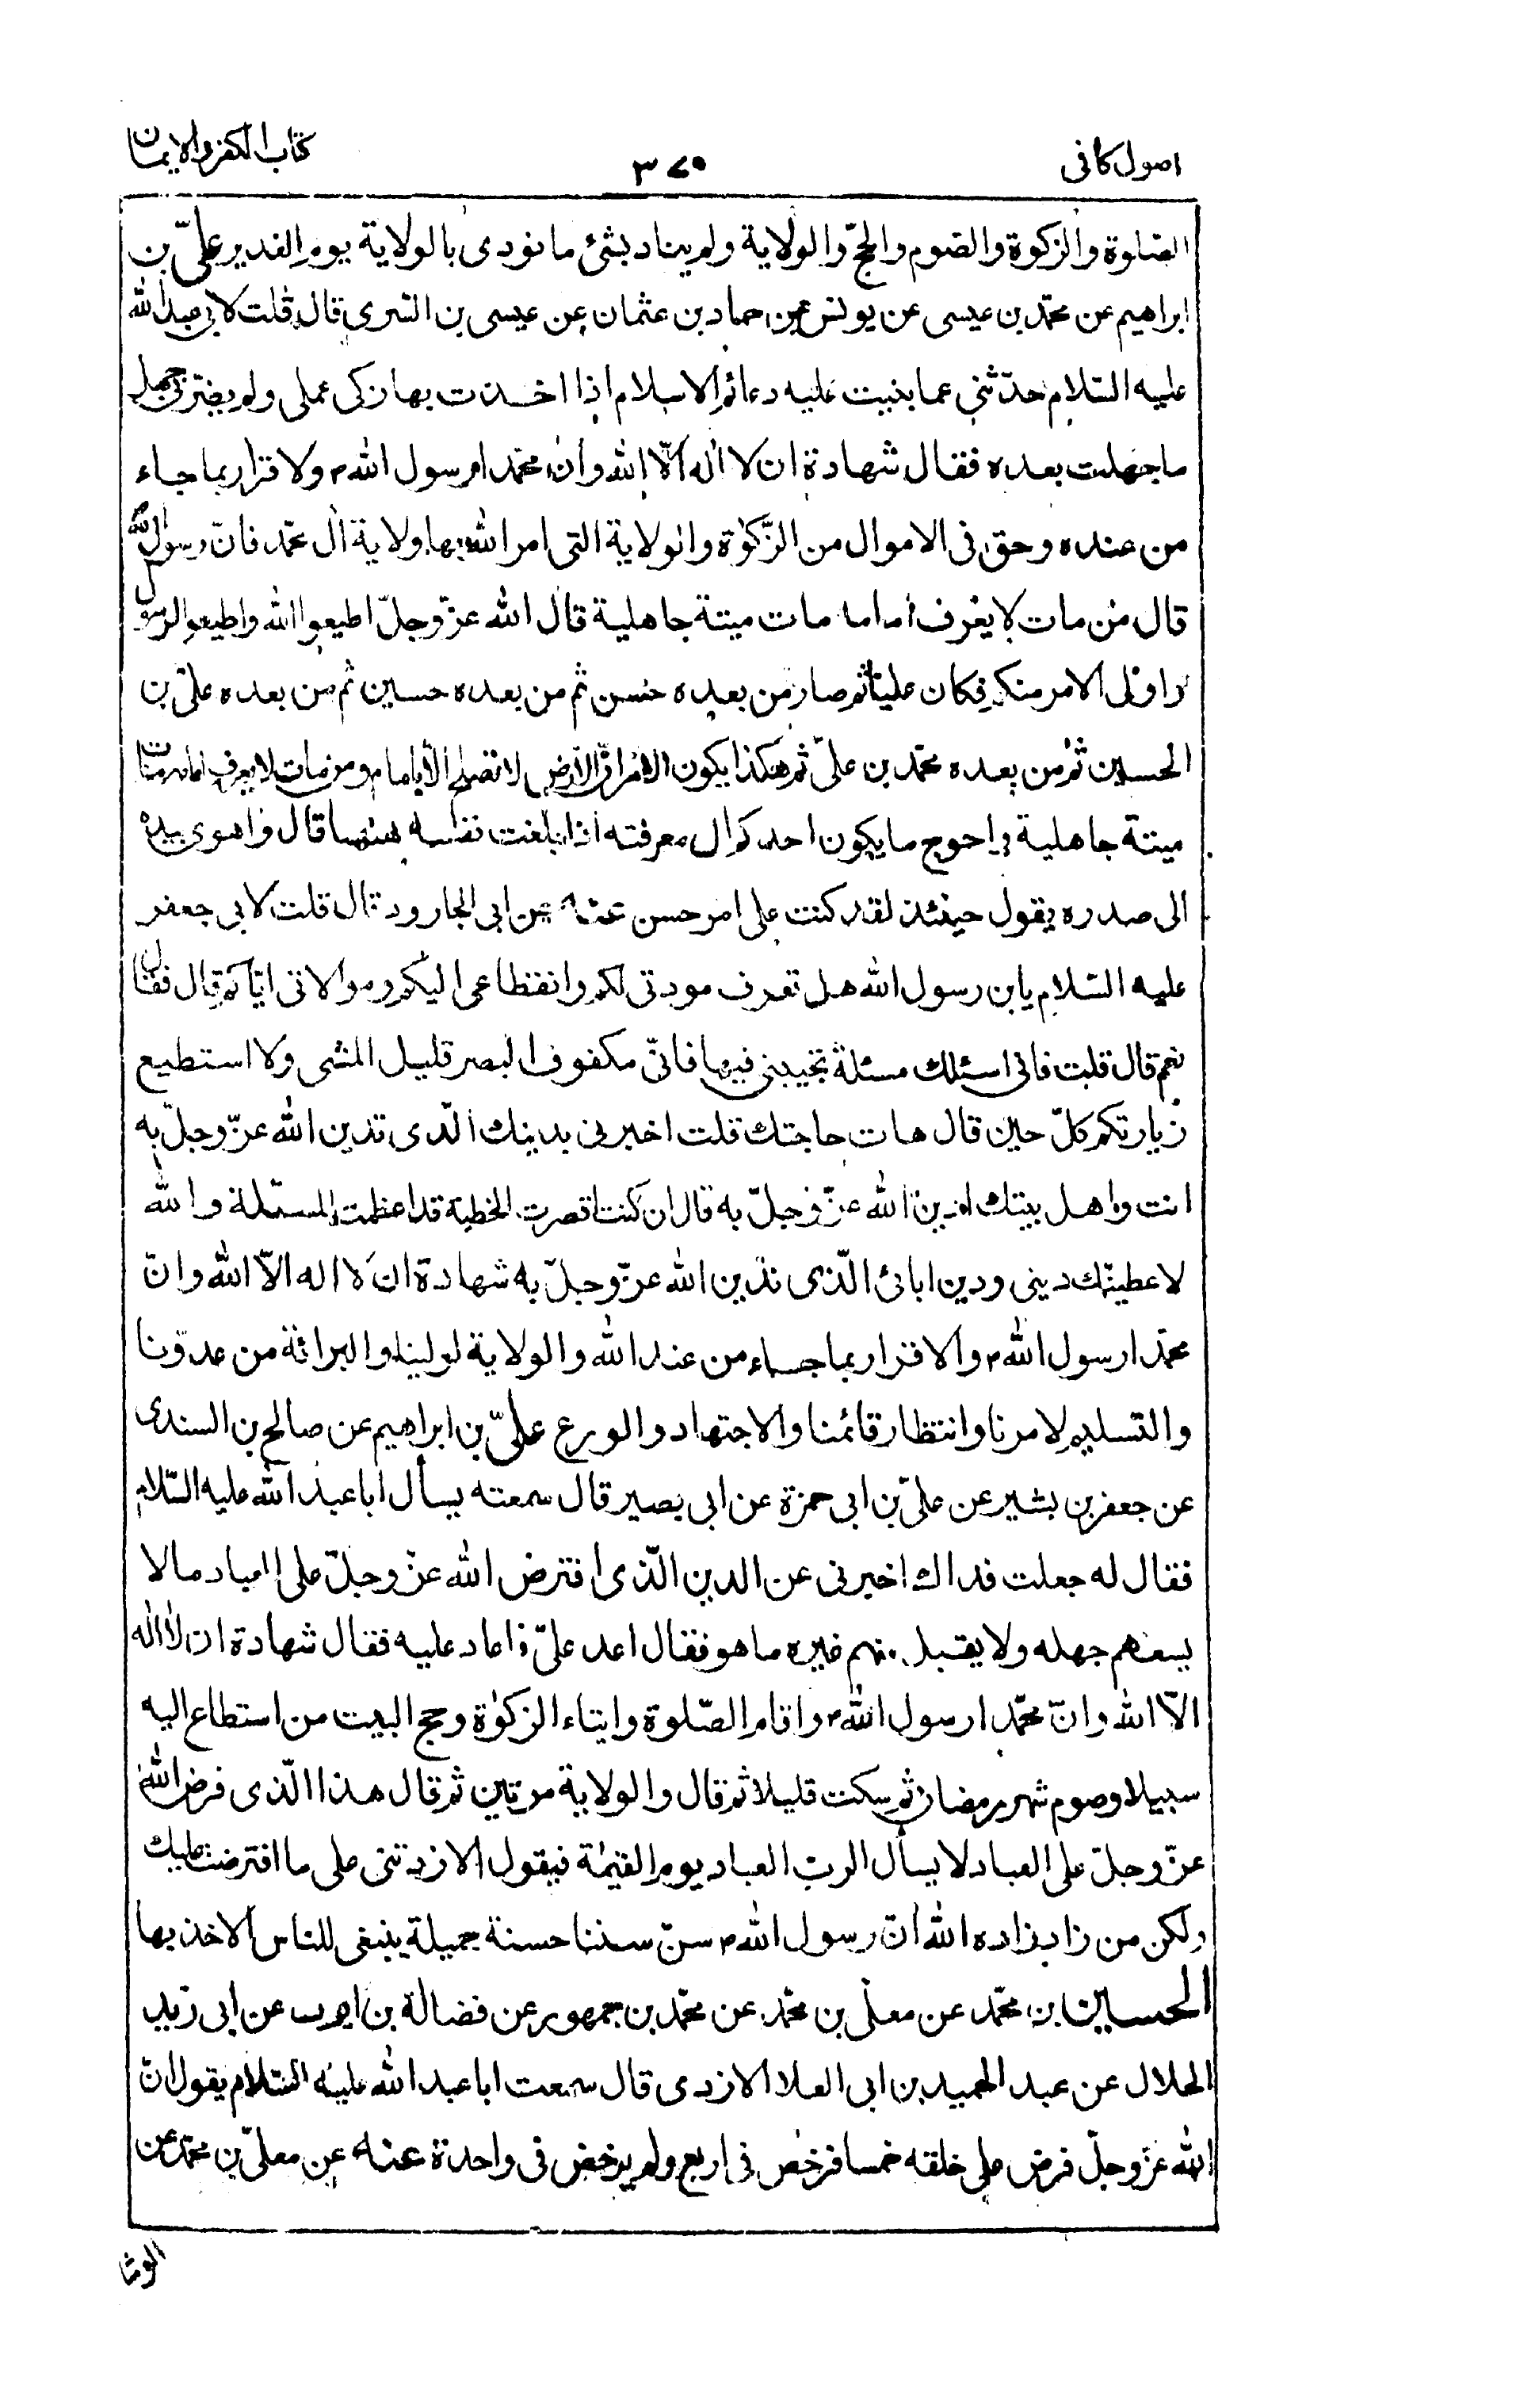 اصول كافى
٣٧٠
كتاب الكفر والايمان
الصّلوة والزكوة والصّوم والحجّ والولاية ولم يناد بشئ ما نودى بالولاية يوم الغدير علىّ بن
ابراهيم عن محمّد بن عيسى عن يونس عن حماد بن عثمان عن عيسى بن السّرى قال قلت لابى عبد الله
عليه السّلام حدّثنى عما بنيت عليه دعائم الاسلام اذا اخذت بها زكى عملى ولم يضرّنى جهل
ما جهلت بعده فقال شهادة ان لا اله الّا الله وانّ محمّدا رسول الله ص ولاقرار بما جاء
من عنده وحق فى الاموال من الزّكوٰة والولاية التى امر الله بها ولاية آل محمّد فانّ رسول الله
قال من مات لا يعرف امامه مات ميتة جاهلية قال الله عزّ وجلّ اطيعوا الله واطيعوا الرسول
واولى الامر منكم فكان عليّا ثم صار من بعده حسن ثم من بعده حسين ثم من بعده علىّ بن
الحسين ثم من بعده محمّد بن علىّ ثم هكذا يكون الامر انّ الارض لا تصلح الّا بامام ومن مات لا يعرف امامه مات
ميتة جاهلية واحوج ما يكون احدكم ال معرفته اذا بلغت نفسه ههنا قال واهوى بيده
الى صدره يقول حينئذ لقد كنت على امر حسن عنه عن ابى الجارود قال قلت لابى جعفر
عليه السّلام يابن رسول الله هل تعرف مودتى لكم وانقطاعى اليكم وموالاتى ايّاكم قال فقال
نعم قال قلت فانى اسئلك مسئلة تجيبنى فيها فانّى مكفوف البصر قليل المشى ولا استطيع
زيارتكم كلّ حين قال هات حاجتك قلت اخبرنى بدينك الّذى تدين الله عزّ وجلّ به
انت واهل بيتك لادين الله عزّ وجلّ به قال ان كنت اقصرت الخطبة قد اعظمت المسئلة والله
لاعطينّك دينى ودين ابائى الّذى ندين الله عزّ وجلّ به شهادة ان لا اله الّا الله وانّ
محمّدا رسول الله ص والاقرار بما جاء من عند الله والولاية لولينا والبرائة من عدوّنا
والتسليم لامرنا وانتظار قائمنا والاجتهاد والورع علىّ بن ابراهيم عن صالح بن السندى
عن جعفر بن بشير عن علىّ بن ابى حمزة عن ابى بصير قال سمعته يسأل ابا عبد الله عليه السّلام
فقال له جعلت فداك اخبرنى عن الدين الّذى افترض الله عزّ وجلّ على العباد ما لا
يسعهم جهله ولا يقبل منهم غيره ما هو فقال اعد علىّ فاعاد عليه فقال شهادة ان لا اله
الّا الله وانّ محمّدا رسول الله ص واقام الصّلوة وايتاء الزكوٰة وحج البيت من استطاع اليه
سبيلا وصوم شهر رمضان ثم سكت قليلا ثم قال والولاية مرتين ثم قال هذا الّذى فرض الله
عزّ وجلّ على العباد لا يسأل الرب العباد يوم القيمة فيقول الا زدتنى على ما افترضت عليك
ولكن من زاد زاده الله انّ رسول الله ص سنّ سننا حسنة جميلة ينبغى للناس الاخذ بها
الحسين بن محمّد عن معلّى بن محمّد عن محمّد بن جمهور عن فضالة بن ايوب عن ابى زيد
الحلال عن عبد الحميد بن ابى العلا الازدى قال سمعت ابا عبد الله عليه السّلام يقول انّ
الله عزّ وجلّ فرض على خلقه خمسا فرخّص فى اربع ولم يرخّص فى واحدة عنه عن معلّى بن محمّد عن
الوشا